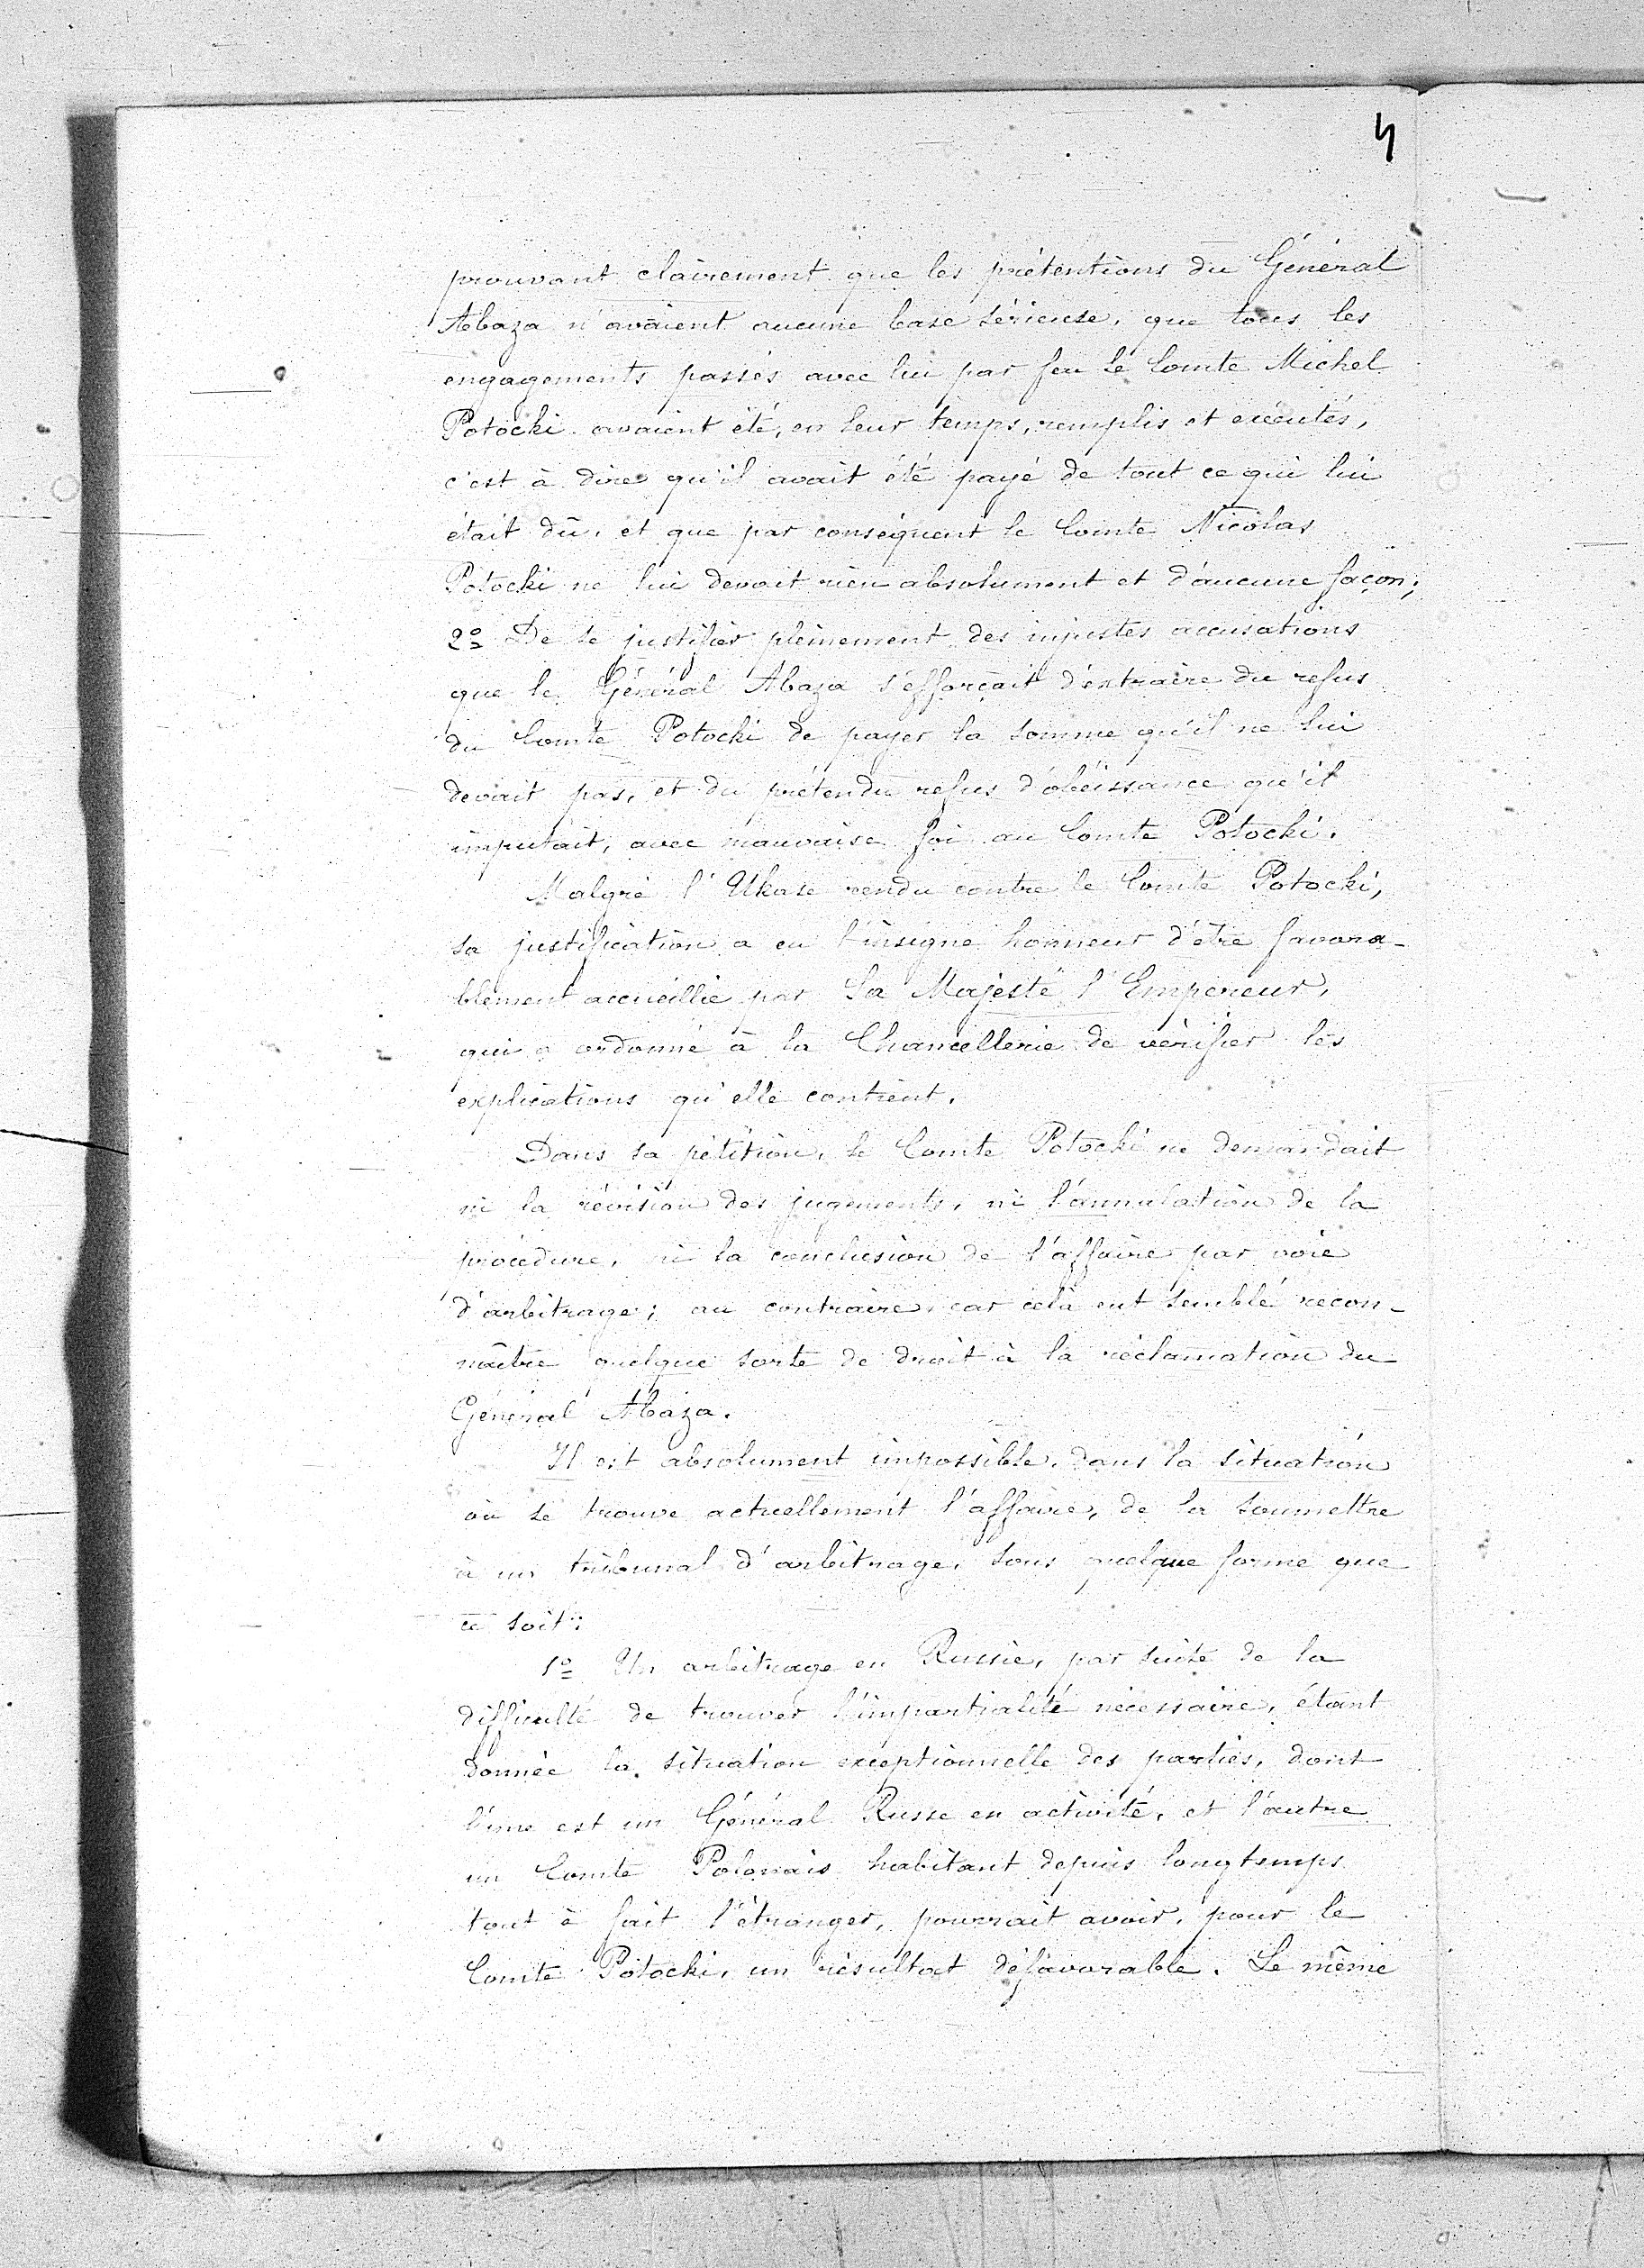 4
prouvant clairement que les prétentions du Général
Abaza n'avaient aucune base sérieuse, que tous les
engagements passés avec lui par feu le Comte Michel
Potocki avaient été, en leur temps, remplis et exécutés,
c'est à dire qu'il avait été payé de tout ce qui lui
était dû, et que par conséquent le Comte Nicolas
Potocki ne lui devait rien absolument et d'aucune façon;
2º De se justifier pleinement des injustes accusations
que le Général Abaza s'efforçait d'extraire du refus
du Comte Potocki de payer la somme qu'il ne lui
devait pas, et du prétendu refus d'obéissance qu'il
imputait, avec mauvaise foi au Comte Potocki.
Malgré l'Ukase rendu contre le Comte Potocki,
sa justification a eu l'insigne honneur d'être favora-
blement accueillie par Sa Majesté l'Empereur,
qui a ordonné à la Chancellerie de vérifier les
explications qu'elle contient.
Dans sa pétition, le Comte Potocki ne demandait
ni la révision des jugements, ni l'annulation de la
procédure, ni la conclusion de l'affaire par voie
d'arbitrage; au contraire, car cela eut semblé recon-
naître quelque sorte de droit à la réclamation du
Général Abaza.
Il est absolument impossible, dans la situation
où se trouve actuellement l'affaire, de la soumettre
à un tribunal d'arbitrage, sous quelque forme que
ce soit:
1º Un arbitrage en Russie, par suite de la
difficulté de trouver l'impartialité nécessaire, étant
donnée la situation exceptionnelle des parties, dont
l'une est un Général Russe en activité, et l'autre
un Comte Polonais habitant depuis longtemps
tout à fait l'étranger, pourrait avoir, pour le
Comte Potocki, un résultat défavorable. Le même